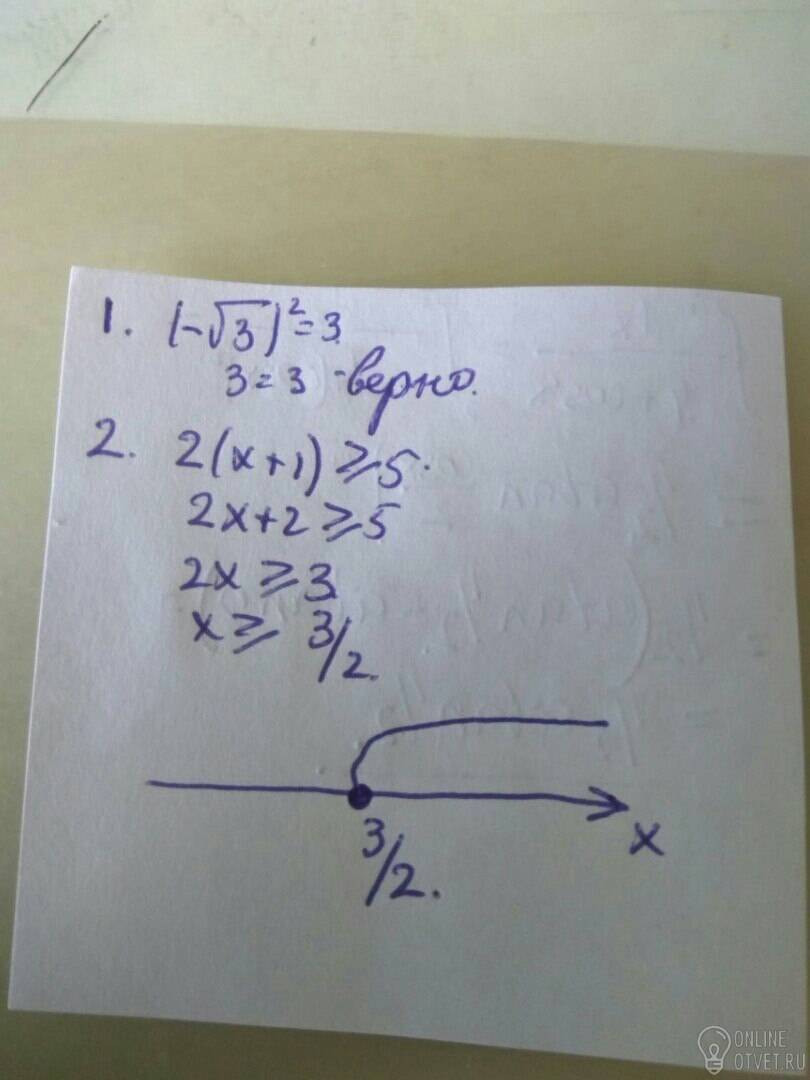 1. (-√3)² = 3.
3 = 3 - верно.
2. 2(x+1) ⩾ 5.
2x+2 ⩾ 5
2x ⩾ 3
x ⩾ 3/2.
3/2.
x
ONLINE
OTVET.RU